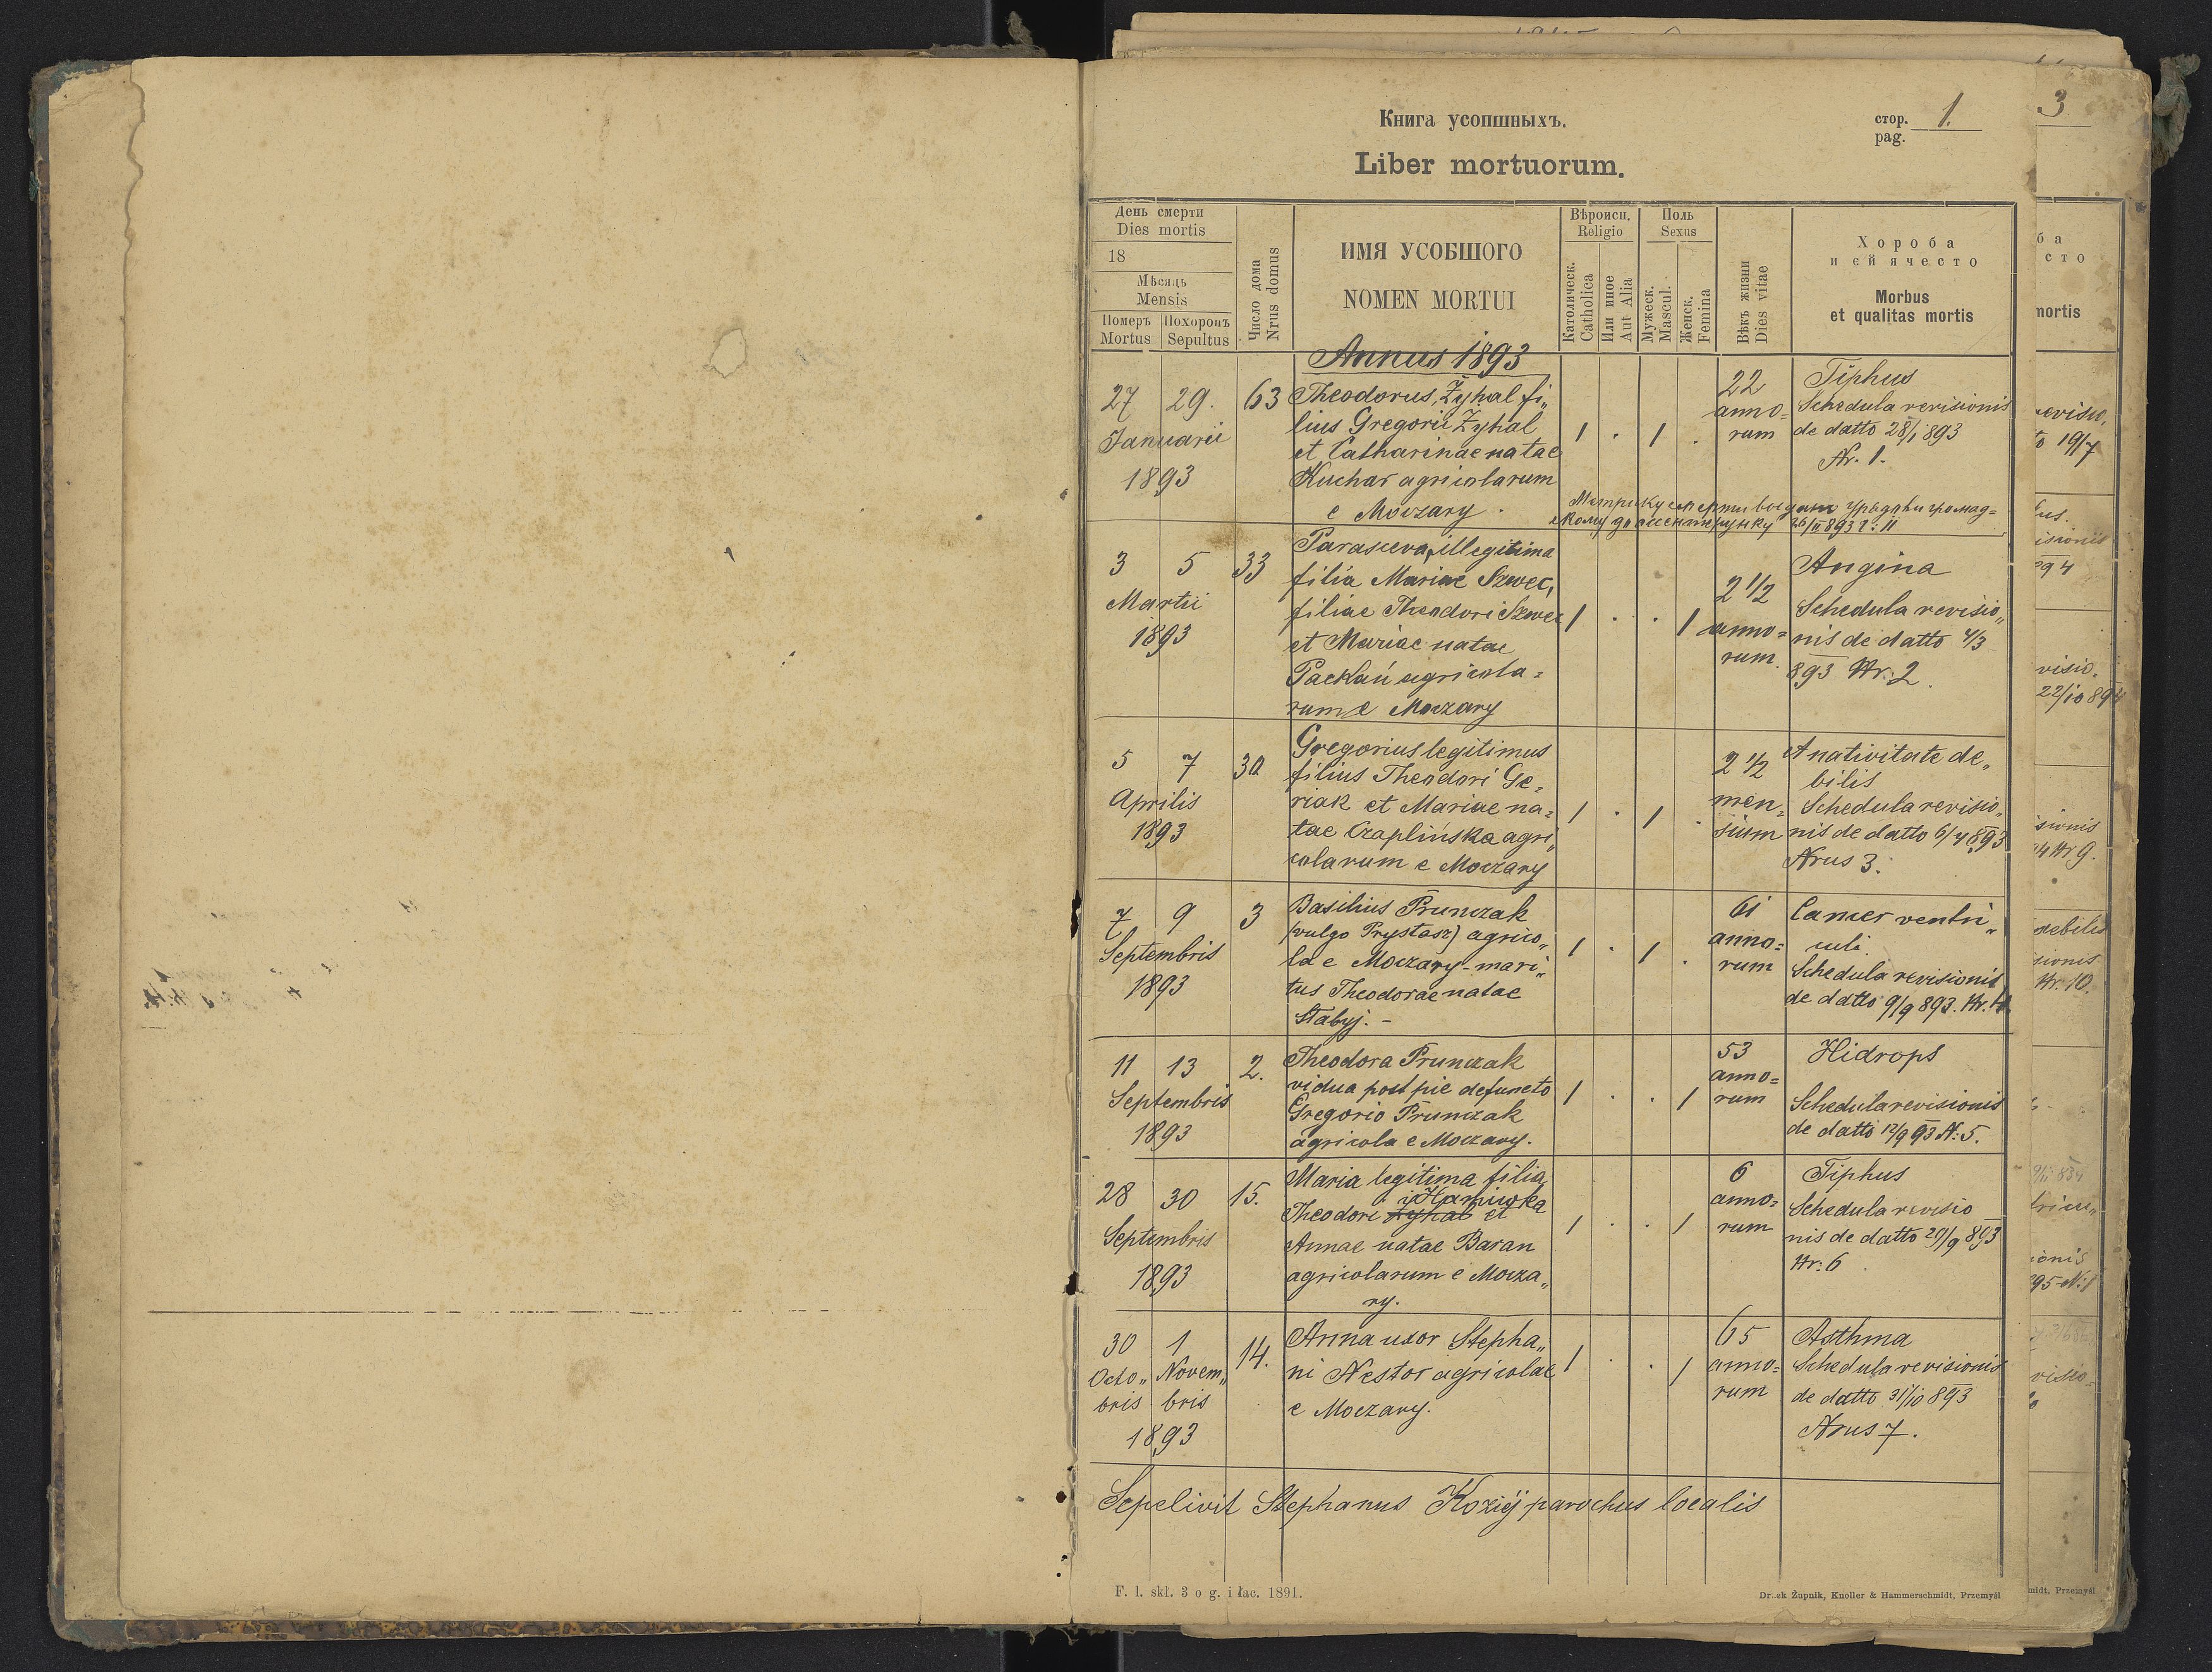 Книга усопшныхъ.
стор. 1.
pag.
Liber mortuorum.
День смерти
Dies mortis
18
Мѣсяць
Mensis
Померъ Похоронъ
Mortus Sepultus
Число дома
Nrus domus
ИМЯ УСОБШОГО
NOMEN MORTUI
Вѣроисп.
Religio
Католическ.
Catholica
Или иное
Aut Alia
Поль
Sexus
Мужеск.
Mascul.
Женск.
Femina
Вѣкъ жизни
Dies vitae
Хороба
и ей ячесто
Morbus
et qualitas mortis
Annus 1893
27 29.
Januarii
1893
63
Theodorus Żyhal fi„
lius Gregorii Żyhal
et Catharinae natae
Kuchar agricolarum
e Moczary.
1 . 1 .
22
anno=
rum
Tiphus
Schedula revisionis
de datto 28/1 893
Nr. 1.
Метрику смерти
26/II 893 ч: 11
3 5
Martii
1893
33
Parasceva, illegitima
filia Mariae Szwec,
filiae Theodori Szwec
et Mariae natae
Packań agricola=
rum e Moczary
1 . . 1
2 1/2
anno=
rum.
Angina
Schedula revisio„
nis de datto 4/3
893 Nr. 2.
5 7
Aprilis
1893
30
Gregorius legitimus
filius Theodori Ge=
riak et Mariae na=
tae Czaplińska agri„
colarum e Moczary
1 . 1 .
2 1/2
men=
sium
A nativitate de„
bilis
Schedula revisio„
nis de datto 6/4 893
Nrus 3.
7 9
Septembris
1893
3
Basilius Prunczak
(vulgo Prystasz) agrico„
la e Moczary - mari„
tus Theodorae natae
Słabyj. -
1 . 1 .
61
anno=
rum
Cancer ventri„
culi
Schedula revisionis
de datto 9/9 893. Nr. 4
11 13
Septembris
1893
2.
Theodora Prunczak
vidua post pie defuncto
Gregorio Prunczak
agricola e Moczary.
1 . . 1
53
anno=
rum
Hidrops
Schedula revisionis
de datto 12/9 93 N: 5.
28 30
Septembris
1893
15.
Maria legitima filia
Theodori Żyhal et
Annae natae Baran
agricolarum e Mocza„
ry.
1 . . 1
6
anno=
rum
Tiphus
Schedula revisio
nis de datto 29/9 893
Nr: 6
30 1
Octo„ Novem„
bris bris
1893
14.
Anna uxor Stepha„
ni Nestor agricolae
e Moczary.
1 . . 1
65
anno=
rum
Asthma
Schedula revisionis
de datto 31/10 893
Nrus 7.
Sepelivit Stephanus Kozij parochus localis
F. l. skł. 3 o g. i łac. 1891.
Żupnik, Knoller & Hammerschmidt, Przemyśl
3
mortis
19/7
22/10 894
midt, Przemyśl